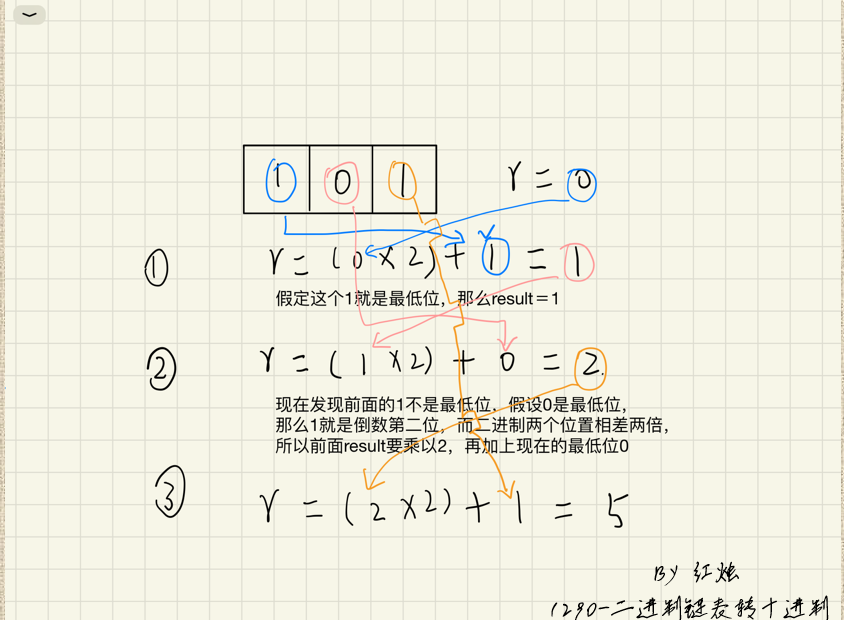 1 0 1 r = 0
① r = (0 × 2) + 1 = 1
假定这个1就是最低位，那么result＝1
② r = (1 × 2) + 0 = 2.
现在发现前面的1不是最低位，假设0是最低位，
那么1就是倒数第二位，而二进制两个位置相差两倍，
所以前面result要乘以2，再加上现在的最低位0
③ r = (2 × 2) + 1 = 5
BY 红烛
1290-二进制链表转十进制